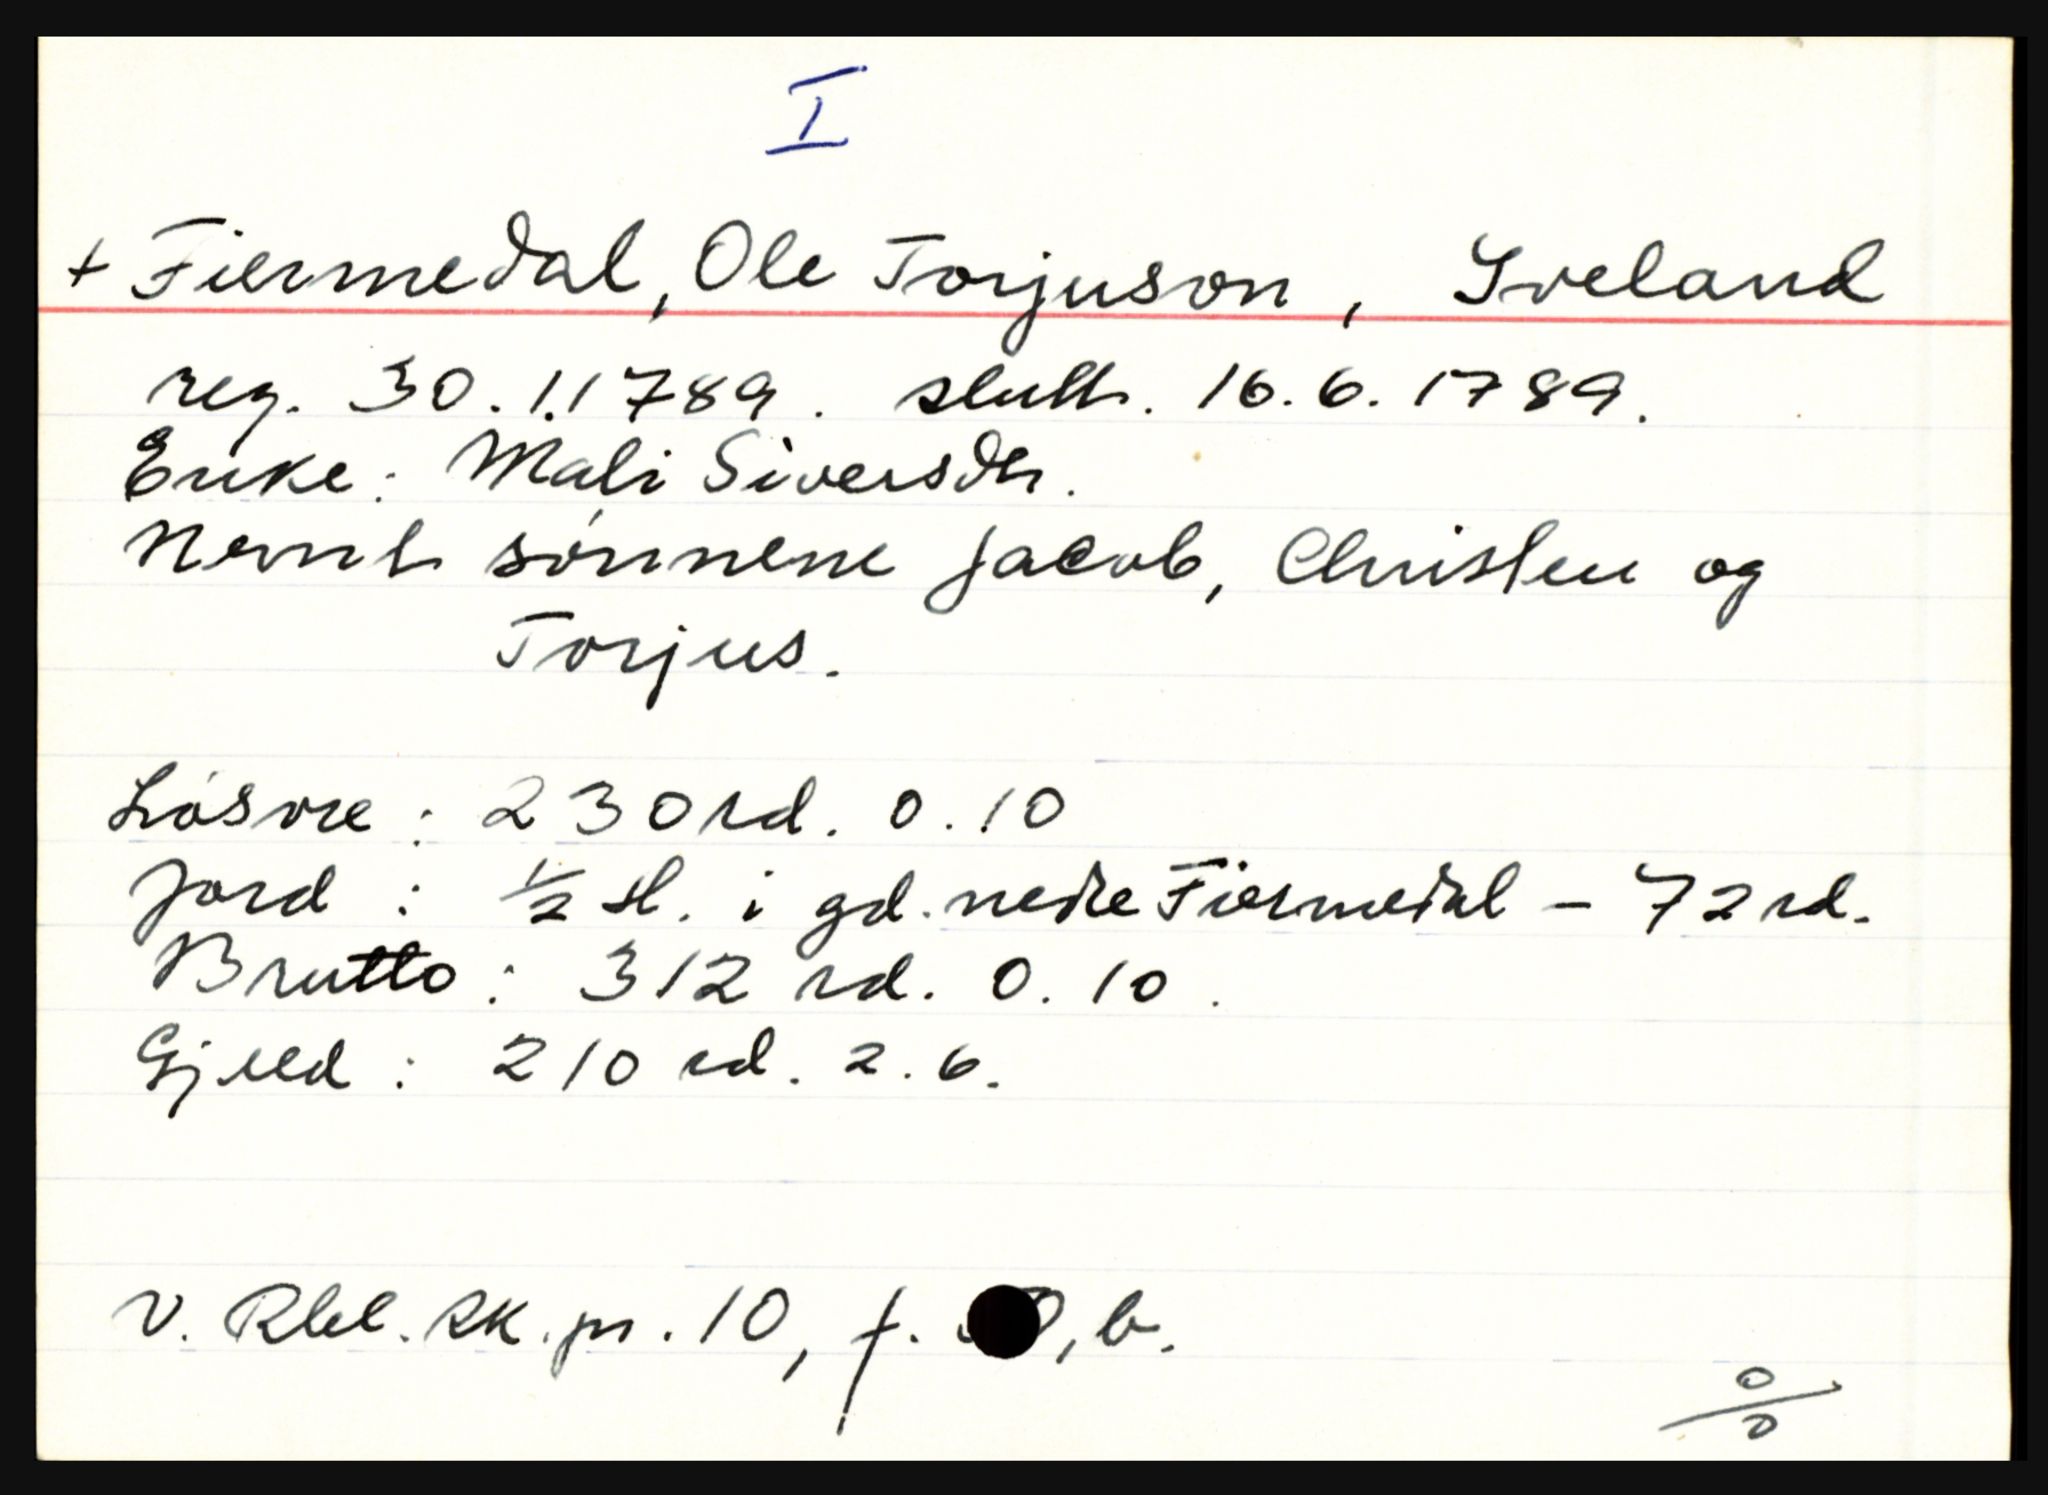 I
+ Fiermedal, Ole Torjuson, Iveland
reg. 30.1.1789. slutt. 16.6.1789.
Enke: Mali Siversdtr.
Nevnt sønnene Jacob, Christen og
Torjus.
Løsøre: 230 rd. 0.10
Jord: 1/2 sl. i gd. nedre Fiermedal - 72 rd.
Brutto: 312 rd. 0.10.
Gjeld: 210 rd. 2.6.
V. Rbl. sk. pr. 10, f. b.
0/0